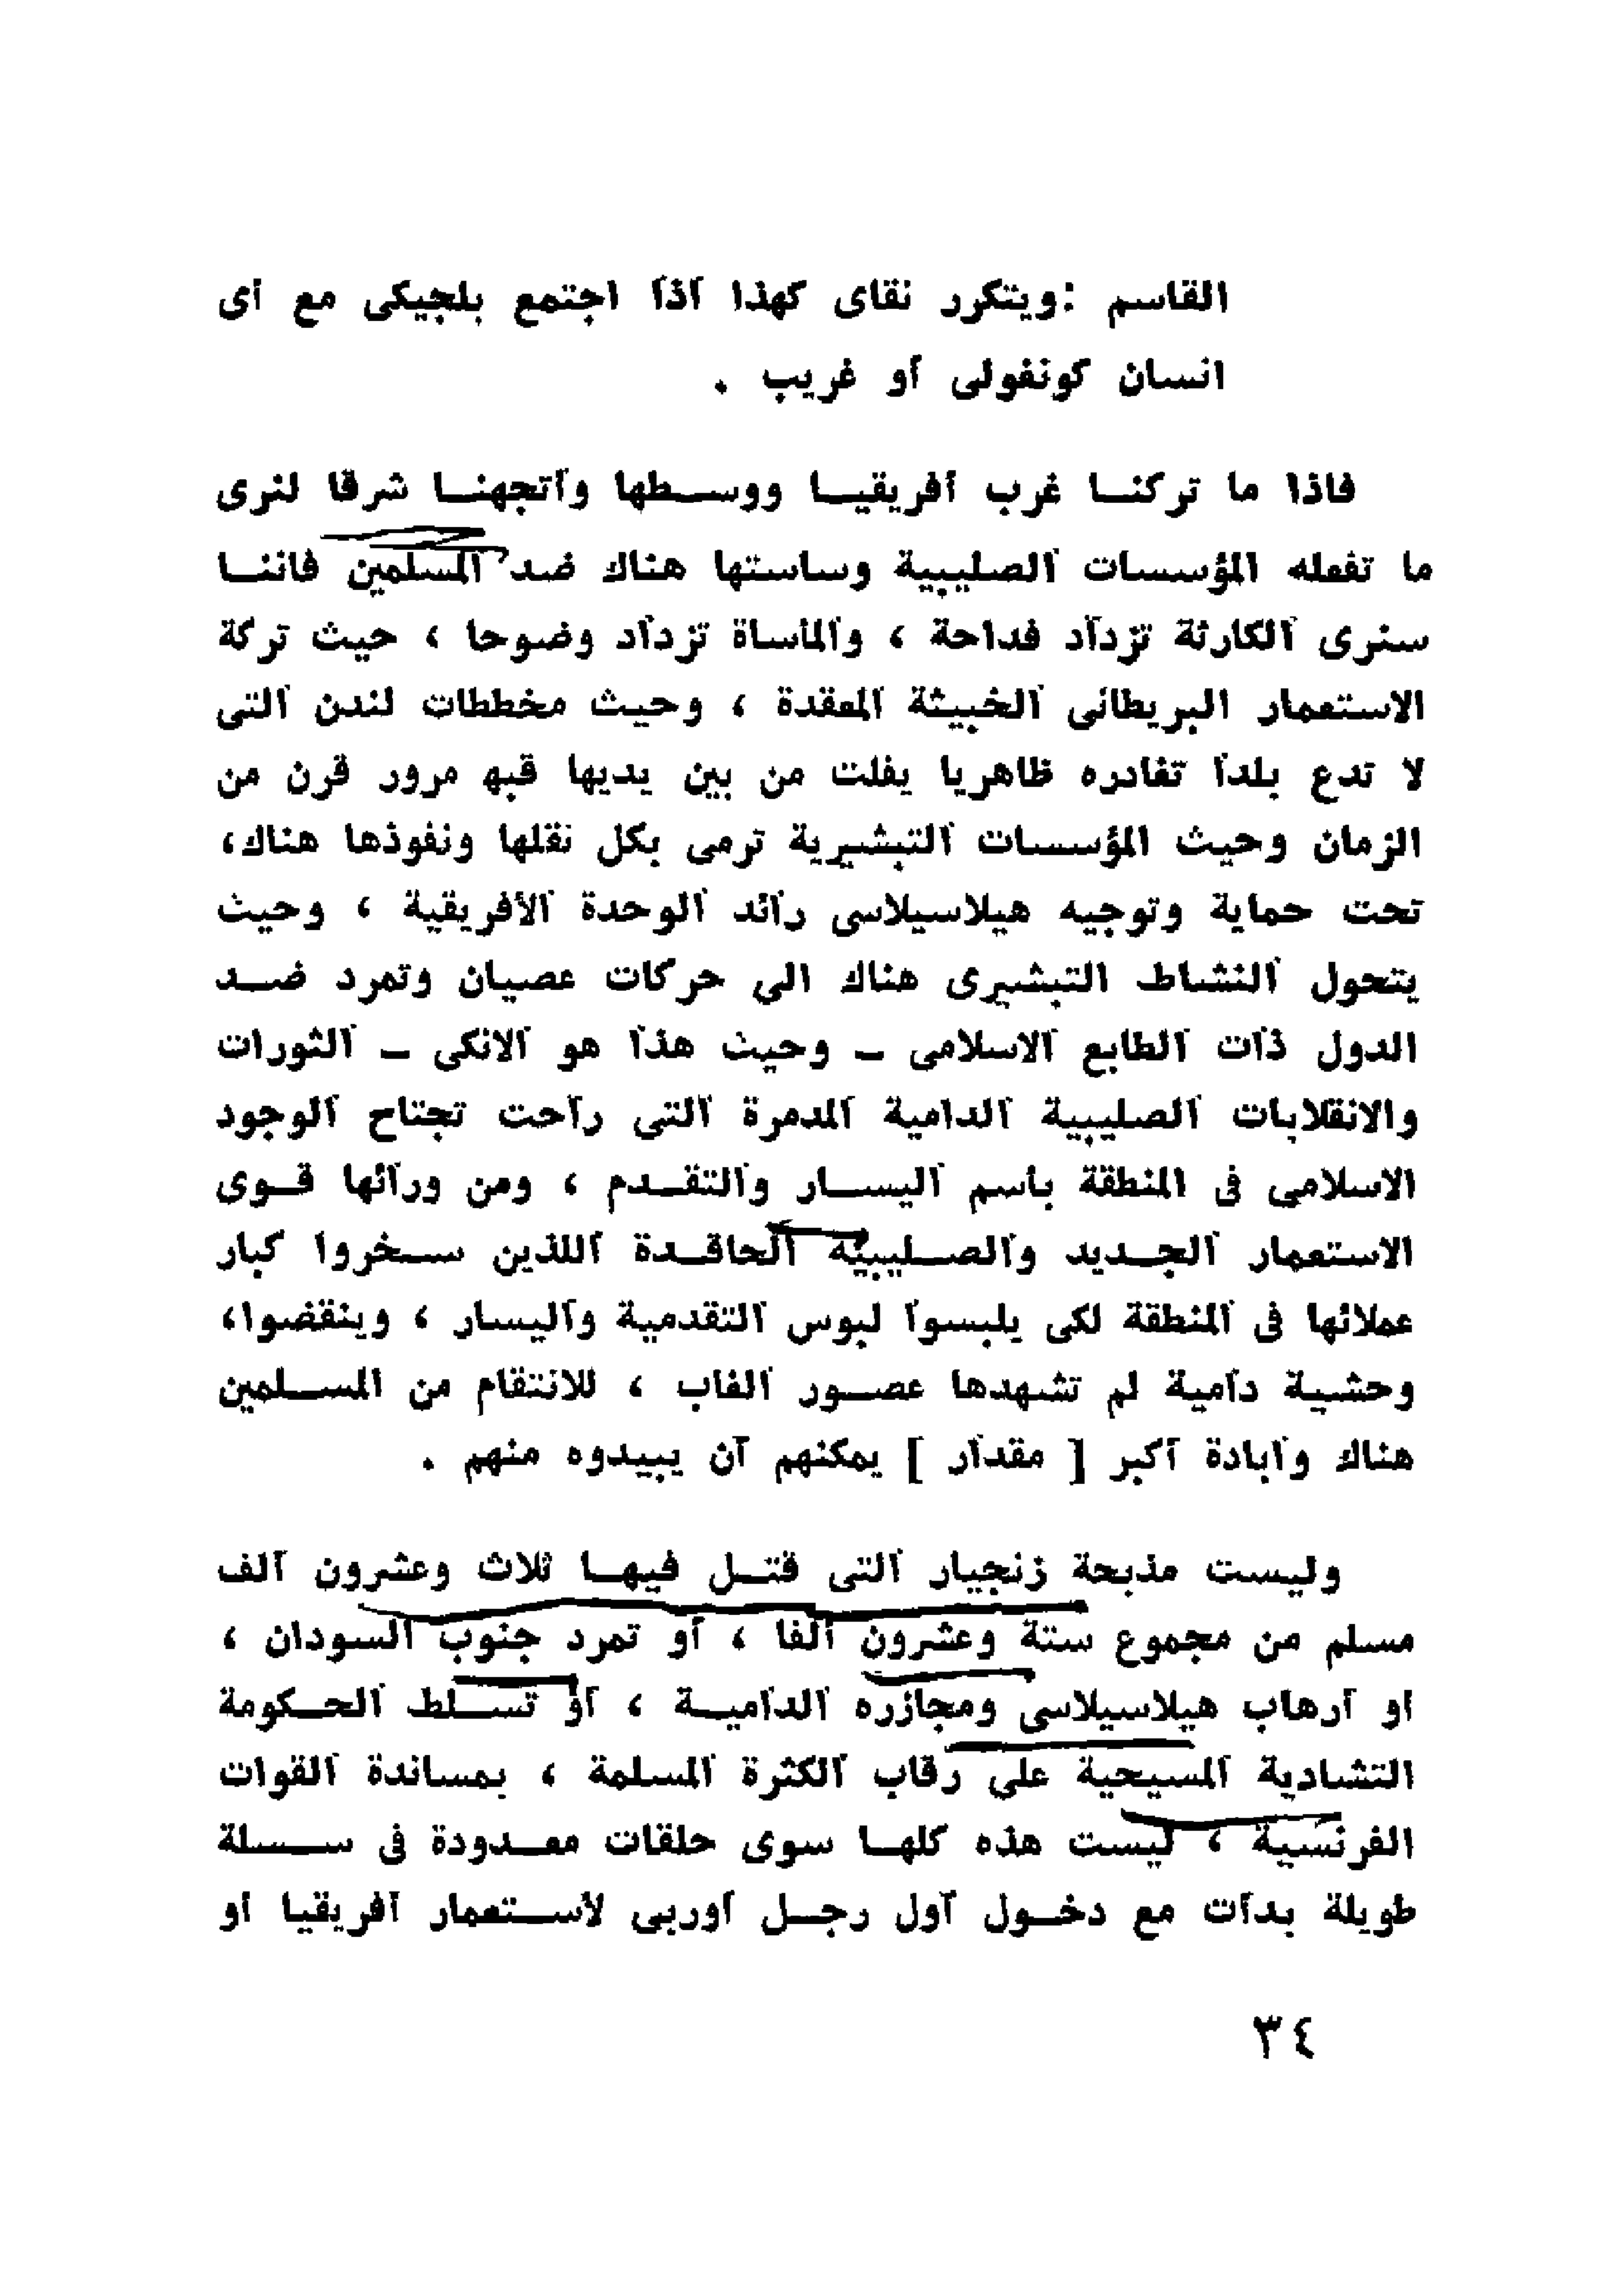 القاسم : ويتكرر نقاى كهذا اذا اجتمع بلجيكى مع اى
انسان كونغولى أو غريب .
فاذا ما تركنا غرب أفريقيا ووسطها واتجهنا شرقا لنرى
ما تفعله المؤسسات الصليبية وساستها هناك ضد المسلمين فاننا
سنرى الكارثة تزداد فداحة ، والمأساة تزداد وضوحا ، حيث تركة
الاستعمار البريطانى الخبيثة المعقدة ، وحيث مخططات لندن التى
لا تدع بلدا تغادره ظاهريا يفلت من بين يديها قبه مرور قرن من
الزمان وحيث المؤسسات التبشيرية ترمى بكل نقلها ونفوذها هناك،
تحت حماية وتوجيه هيلاسيلاسى رائد الوحدة الأفريقية ، وحيث
يتحول النشاط التبشيرى هناك الى حركات عصيان وتمرد ضد
الدول ذات الطابع الاسلامى – وحيث هذا هو الانكى – الثورات
والانقلابات الصليبية الدامية المدمرة التى راحت تجتاح الوجود
الاسلامى فى المنطقة بأسم اليسار والتقدم ، ومن ورائها قوى
الاستعمار الجديد والصليبية الحاقدة اللذين سخروا كبار
عملائها فى المنطقة لكى يلبسوا لبوس التقدمية واليسار ، وينقضوا،
وحشية دامية لم تشهدها عصور الغاب ، للانتقام من المسلمين
هناك وابادة أكبر [ مقدار ] يمكنهم أن يبيدوه منهم .
وليست مذبحة زنجيار التى قتل فيها ثلاث وعشرون ألف
مسلم من مجموع ستة وعشرون ألفا ، أو تمرد جنوب السودان ،
او ارهاب هيلاسيلاسى ومجازره الدامية ، أو تسلط الحكومة
التشادية المسيحية على رقاب الكثرة المسلمة ، بمساندة القوات
الفرنسية ، ليست هذه كلها سوى حلقات معدودة فى سسلة
طويلة بدأت مع دخول أول رجل اوربى لأستعمار أفريقيا او
٣٤